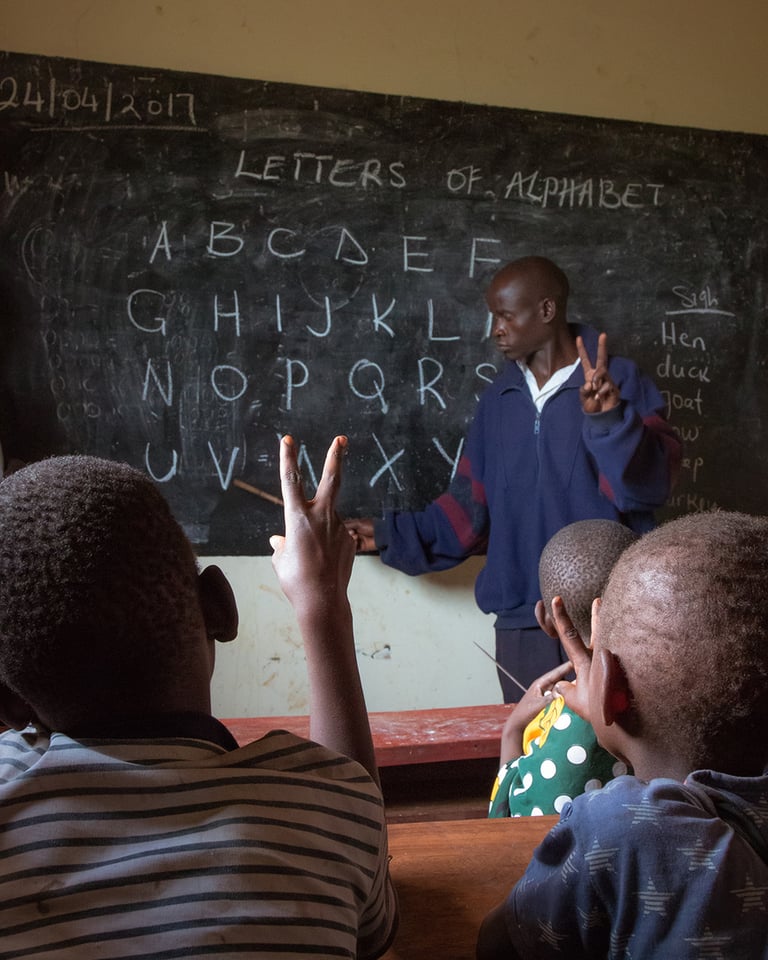 24/04/2017
LETTERS OF ALPHABET
A B C D E F
G H I J K L
N O P Q R S
U V X Y
Sigh
Hen
duck
goat